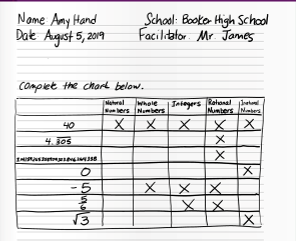 Name Amy Hand School: Booker High School
Date August 5, 2019 Facilitator: Mr. James
Complete the chart below.
Natural Numbers Whole Numbers Integers Rational Numbers Irrational Numbers
40 X X X X X
4.305 X
X
0 X
-5 X X X
5/6 X X
√3 X